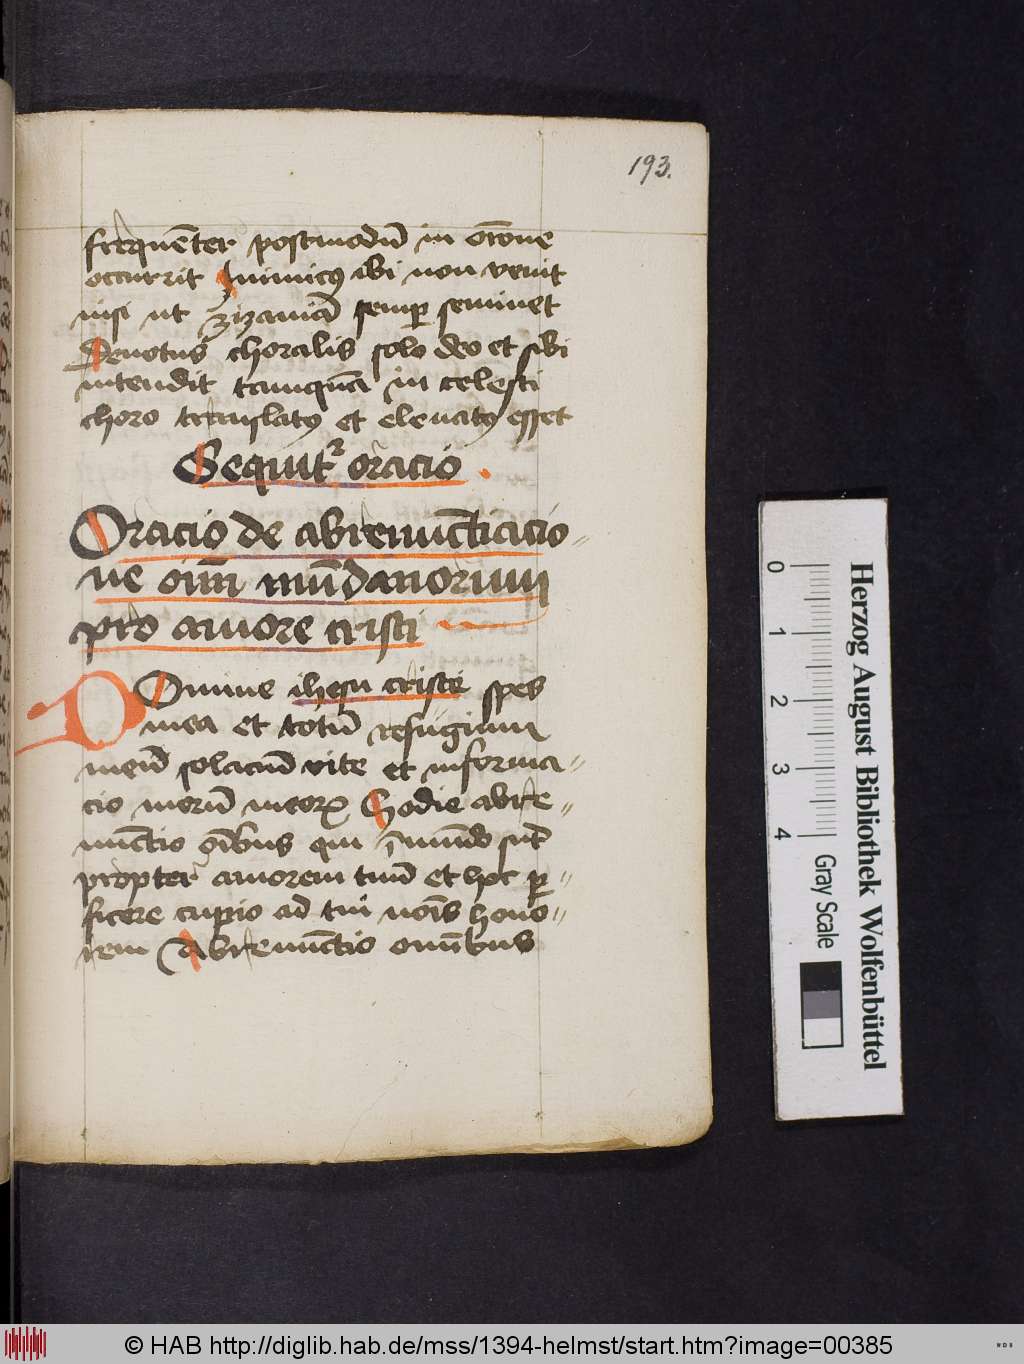 193.
frequēter postmodū in orōne
occurrit Inimicꝯ ibi non venit
nisi ut zizaniā semꝑ seminet
Deuotus choralis solo deo et sibi
intendit tamquā in celesti
choro translatꝯ et eleuatꝯ esset
Sequitᷣ oracio .
Oracio de abrenūcticacio-
ne oīm mūdanorum
pro amore cristi
DOmine ihesu criste spes
mea et totū refugium
meū solaciū vite et informa-
cio morū meorꝝ Hodie abre-
nūctio oībus qui ī mūdo sūt
propter amorem tuū et hoc ꝑ-
ficere cupio ad tui noīs hono-
rem Abrenūctio omībus
Herzog August Bibliothek Wolfenbüttel
0 1 2 3 4
Gray Scale
© HAB http://diglib.hab.de/mss/1394-helmst/start.htm?image=00385